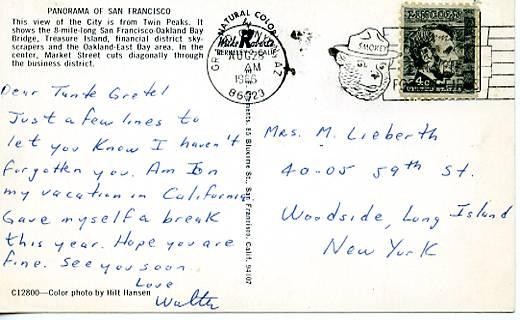 PANORAMA OF SAN FRANCISCO
This view of the City is from Twin Peaks. It
shows the 8-mile-long San Francisco-Oakland Bay
Bridge, Treasure Island, financial district sky-
scrapers and the Oakland-East Bay area. In the
center, Market Street cuts diagonally through
the business district.
Dear Tante Gretel
Just a few lines to
let you know I haven't
forgotten you. Am I on
my vacation in California
Gave myself a break
this year. Hope you are
fine. See you soon
Love
Walter
C12800—Color photo by Hilt Hansen
NATURAL COLOR
by
Mike Roberts
BERKELEY
AUG 28
AM
1966
86023
AZ
SMOKEY
85 Bluxome St., San Francisco, Calif. 94107
LINCOLN
4c
UNITED STATES
Mrs. M. Lieberth
40-05 59th St.
Woodside, Long Island
New York